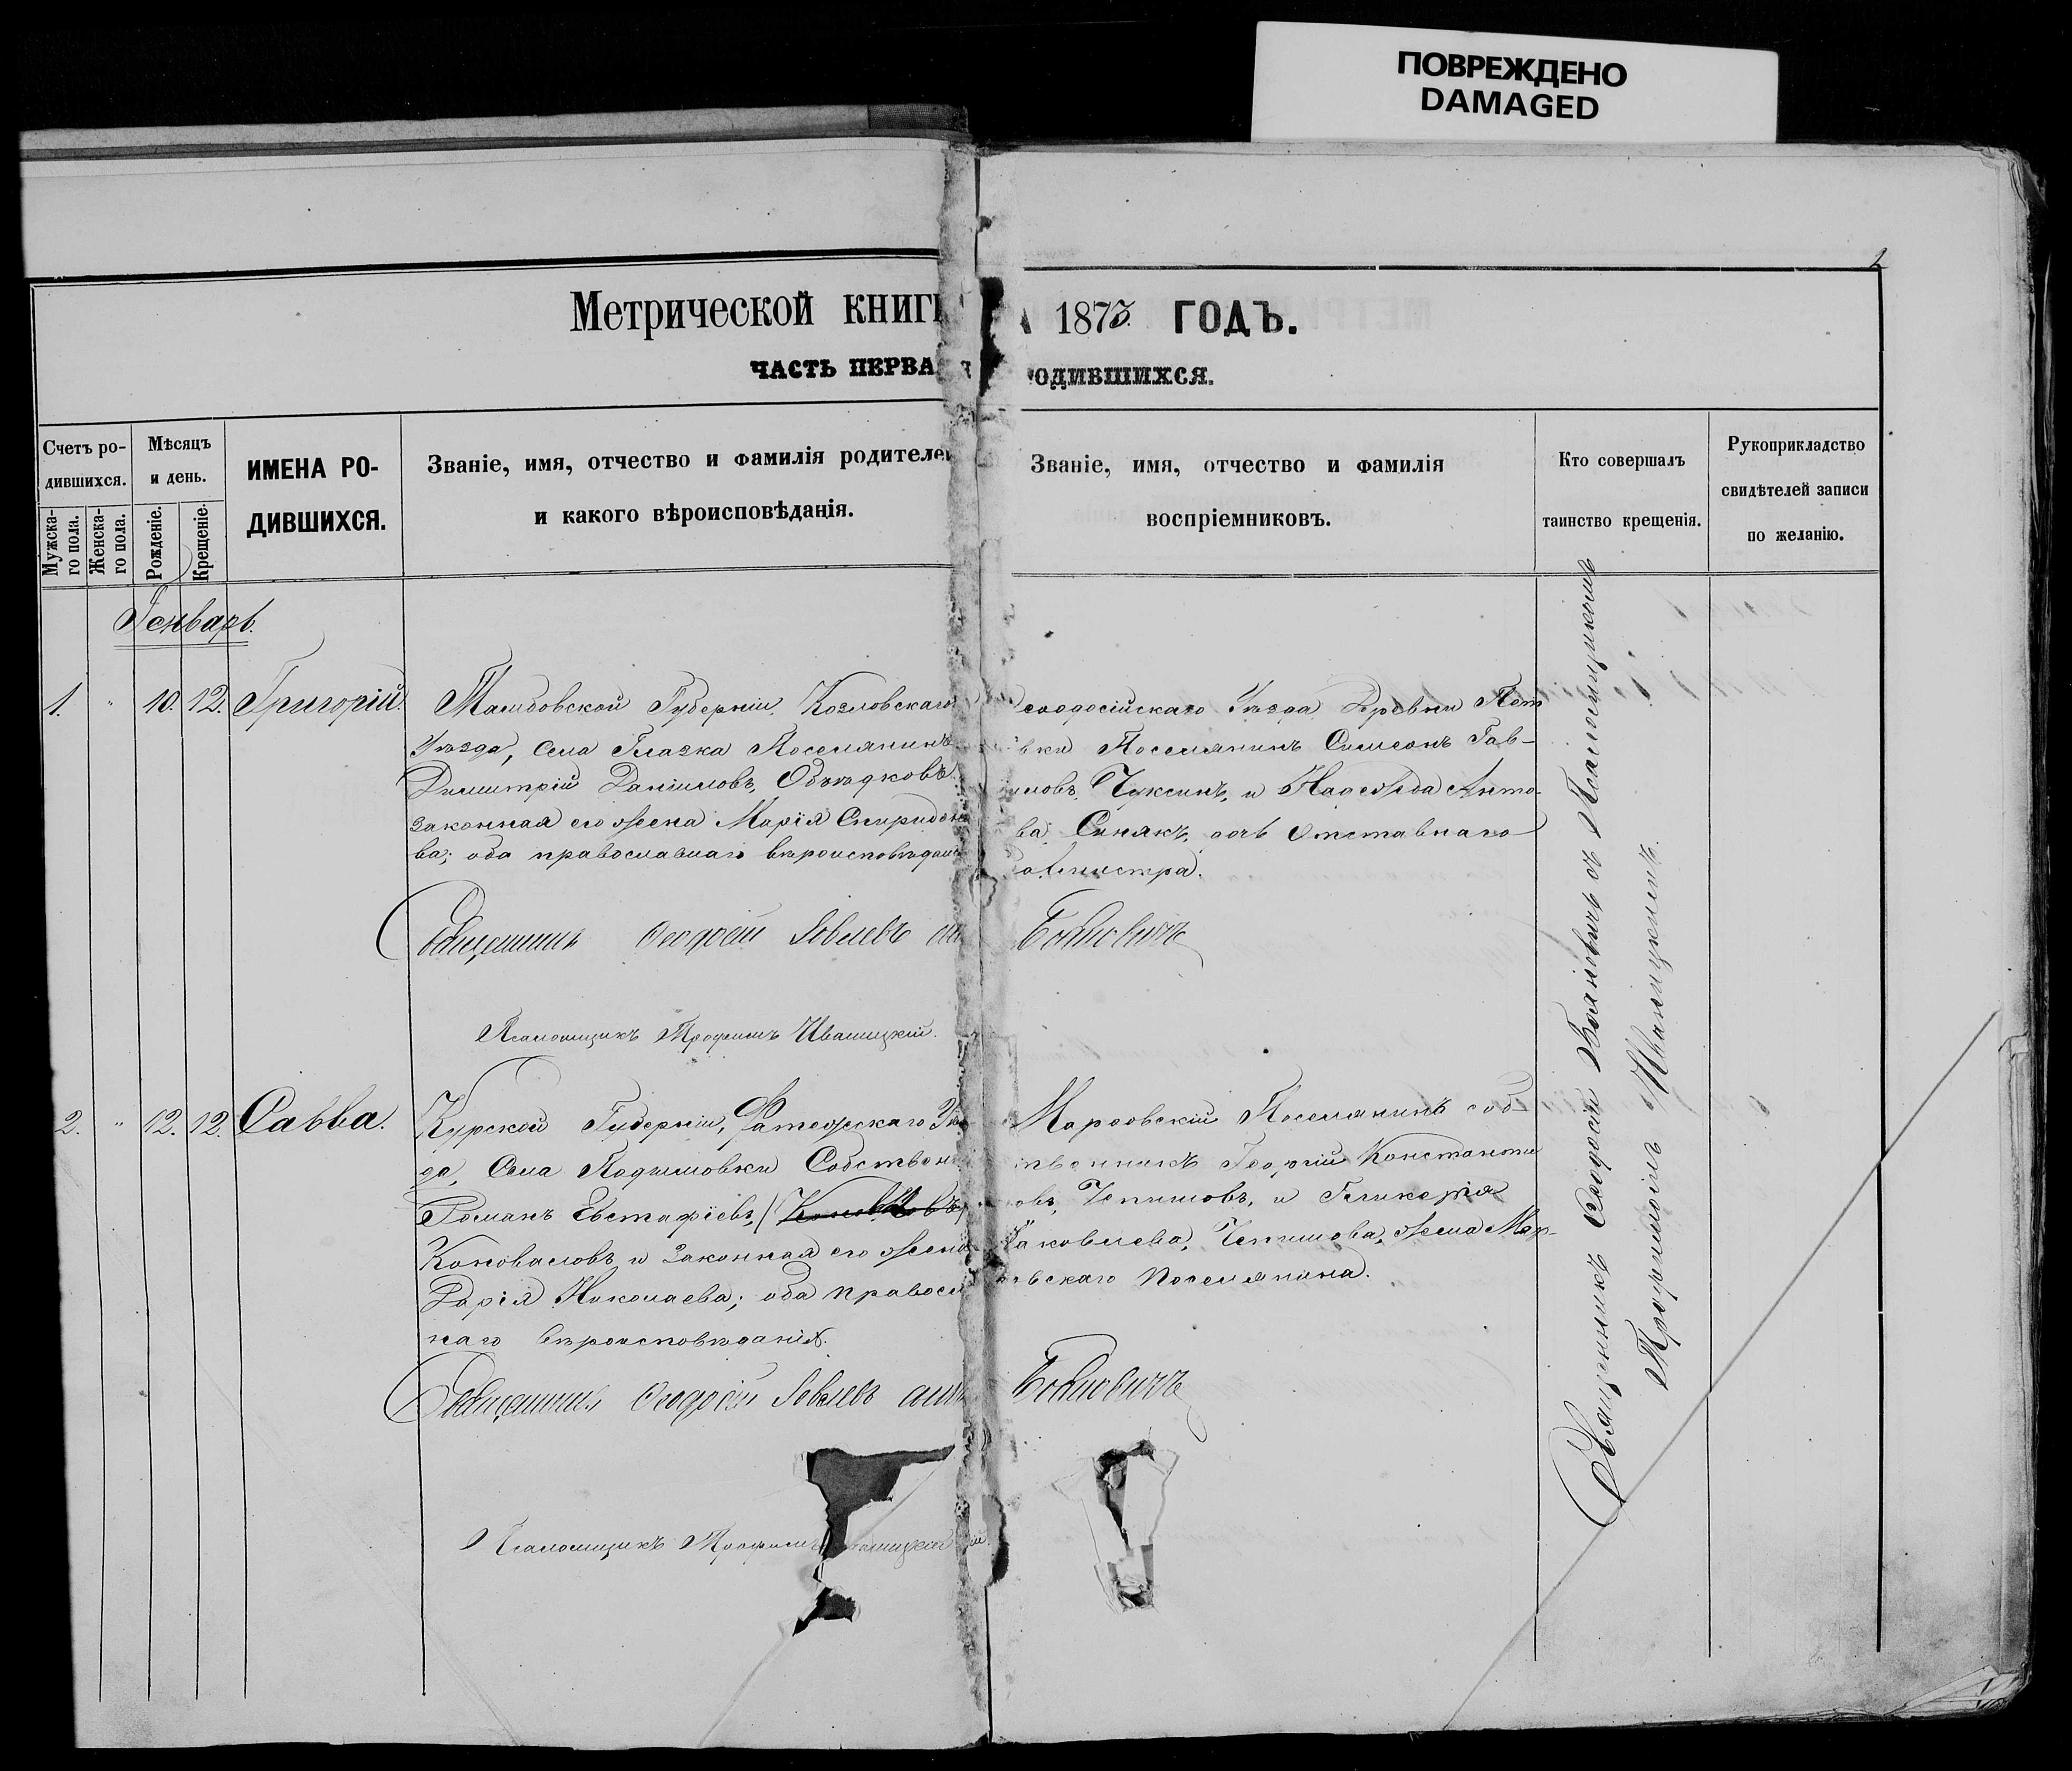 ПОВРЕЖДЕНО
DAMAGED
2
Метрической книги 1875 ГОДЪ.
ЧАСТЬ ПЕРВАЯ одившихся.
Счетъ ро-
дившихся.
Мужска-
го пола.
Женска-
го пола.
Мѣсяцъ
и день.
Рожденіе.
Крещеніе.
ИМЕНА РО-
ДИВШИХСЯ.
Званіе, имя, отчество и фамилія родителей
и какого вѣроисповѣданія.
Званіе, имя, отчество и фамилія
воспріемниковъ.
Кто совершалъ
таинство крещенія.
Рукоприкладство
свидѣтелей записи
по желанію.
Генварь.
1. " 10. 12. Григорій.
Тамбовской Губерніи, Козловскаго
Уѣзда, Села Глазка Поселянинъ
Димитрій Даніиловъ, Объѣдковъ
законная его жена Марія Спиридоно
ва; оба православнаго вѣроисповѣдані
еодосійскаго Уѣзда Деревни Пет
вки Поселянинъ Симеонъ Гав-
иловъ, Чуксинъ, и Надежда Анто-
ва, Синякъ, дочь Отставнаго
Священникъ Ѳеодосій Іовлевъ сынъ
Бояновичъ
Псаломщикъ Трофимъ Иваницкій.
2. " 12. 12. Савва.
Курской Губерніи, Фатежскаго Уѣз
да, Села Подымовки Собствен
Романъ Евстафіевъ,
Коноваловъ и Законная его жена
Дарія Николаева; оба правосл
наго вѣроисповѣданія.
Марфовскій Поселянинъ соб-
твенникъ Георгій Константи
овъ, Чепишовъ, и Гликерія
Яковлева, Чепишова, жена Мар-
вскаго поселянина.
Священникъ Ѳеодосій Іовлевъ сынъ
Бояновичъ
Псаломщикъ Трофимъ
Священникъ Ѳеодосій Бояновичъ съ Псаломщикомъ
Трофимомъ Иваницкимъ.